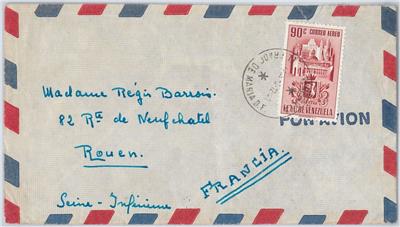 90c CORREO AEREO
EE.UU. DE VENEZUELA
POR AVION
Madame Régis Barrois.
82 Rte de Neufchatel
Rouen.
Seine-Inférieure
FRANCIA.